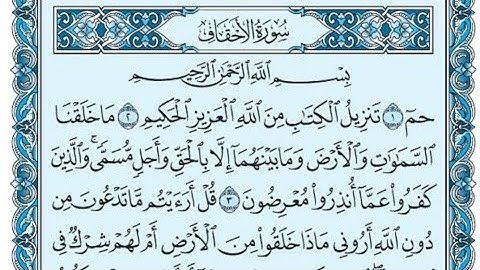 سُورَةُ الأَحْقَافِ
بِسْمِ اللَّهِ الرَّحْمَٰنِ الرَّحِيمِ
حمٓ ۝١ تَنزِيلُ الْكِتَٰبِ مِنَ اللَّهِ الْعَزِيزِ الْحَكِيمِ ۝٢ مَا خَلَقْنَا
السَّمَٰوَٰتِ وَالْأَرْضَ وَمَا بَيْنَهُمَا إِلَّا بِالْحَقِّ وَأَجَلٍ مُّسَمًّى ۚ وَالَّذِينَ
كَفَرُوا عَمَّا أُنذِرُوا مُعْرِضُونَ ۝٣ قُلْ أَرَءَيْتُم مَّا تَدْعُونَ مِن
دُونِ اللَّهِ أَرُونِي مَاذَا خَلَقُوا مِنَ الْأَرْضِ أَمْ لَهُمْ شِرْكٌ فِي